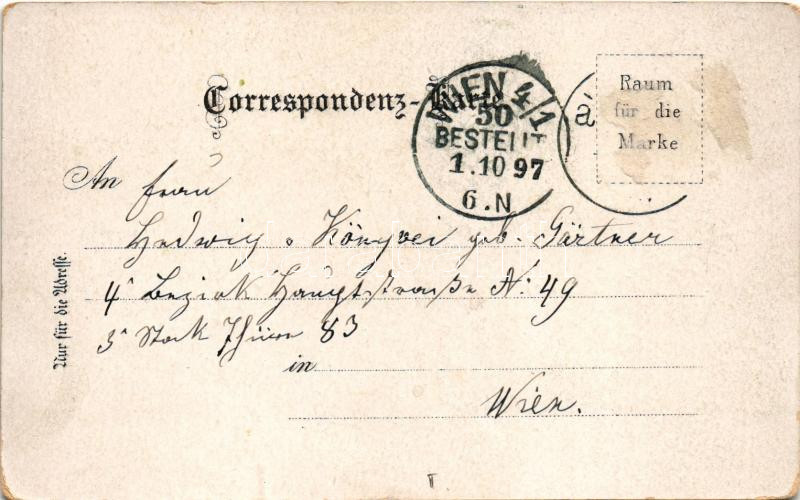 Correspondenz-Karte
WIEN 4/1
50
BESTELLT
1.10 97
6.N
à
Raum
für die
Marke
An Frau
Hedwig v. geb. Gärtner
4t Bezirk Hauptstraße N: 49
3t Stock Thüre 83
in
Wien.
Nur für die Adresse.